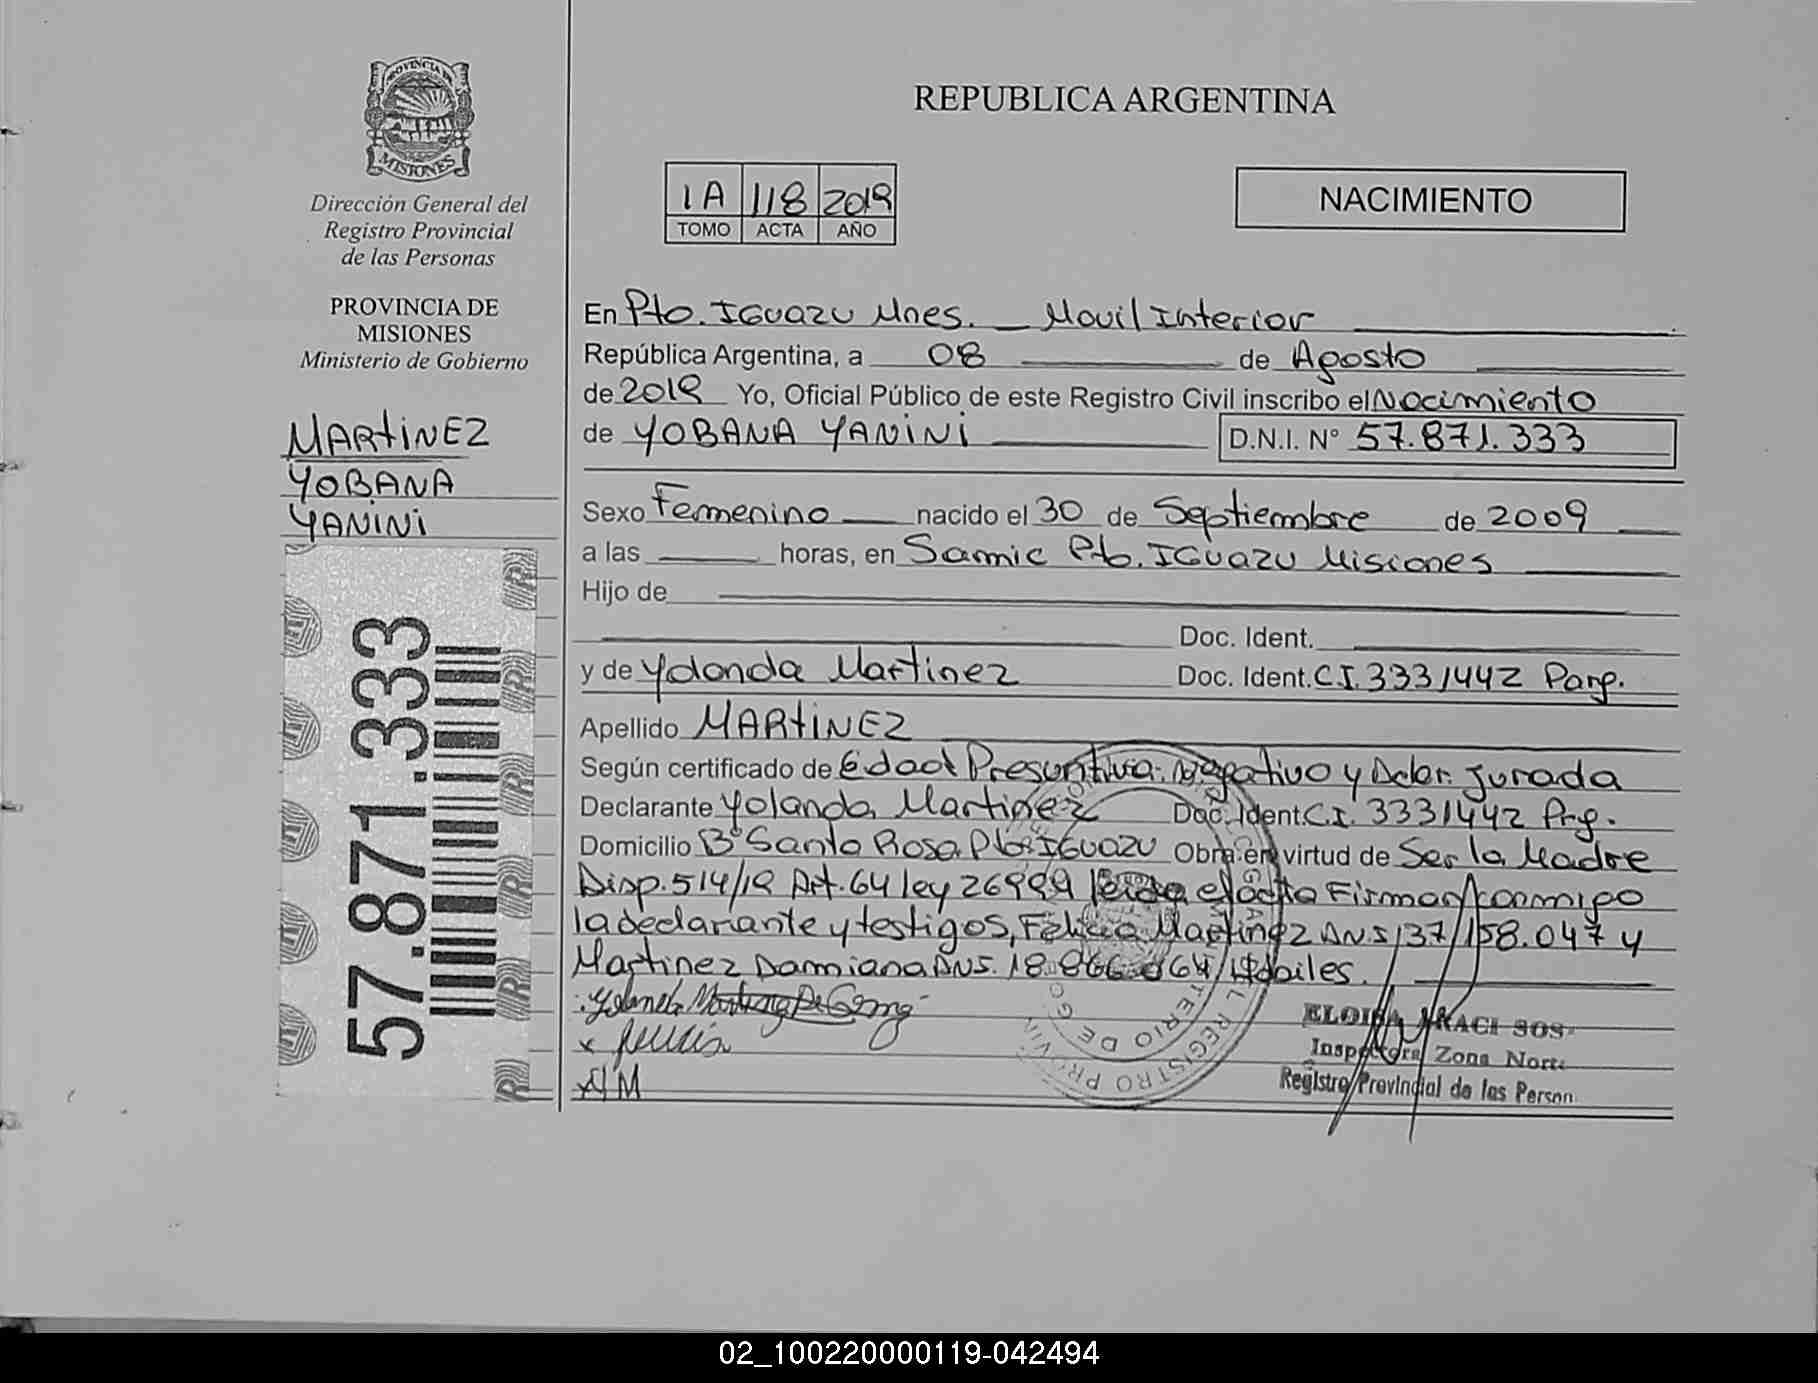 PROVINCIA DE
MISIONES
Dirección General del
Registro Provincial
de las Personas
PROVINCIA DE
MISIONES
Ministerio de Gobierno
MARTINEZ
YOBANA
YANINI
57.871.333
REPUBLICA ARGENTINA
1A 118 2019
TOMO ACTA AÑO
NACIMIENTO
En Pto. IGUAZU Mnes. _ Movil Interior
República Argentina, a 08 de Agosto
de 2019 Yo, Oficial Público de este Registro Civil inscribo el Nacimiento
de YOBANA YANINI D.N.I. N° 57.871.333
Sexo Femenino nacido el 30 de Septiembre de 2009
a las horas, en Samic Pto. IGUAZU Misiones
Hijo de
Doc. Ident.
y de Yolanda Martinez Doc. Ident. C.I. 3331442 Parg.
Apellido MARTINEZ
Según certificado de Edad Presuntiva. Negativo y Decl. Jurada
Declarante Yolanda Martinez Doc. Ident. C.I. 3331442 Prg.
Domicilio B° Santa Rosa Pto. IGUAZU Obra en virtud de Ser la Madre
Disp. 514/19 Art. 64 ley 26999 leida el acta Firman conmigo
la declarante y testigos, Felicia Martinez DNI 37.158.047 y
Martinez Damiana DNI. 18.866.064 Habiles.
ELOISA ARACI SOS
Inspectora Zona Norte
Registro Provincial de las Person
02_100220000119-042494